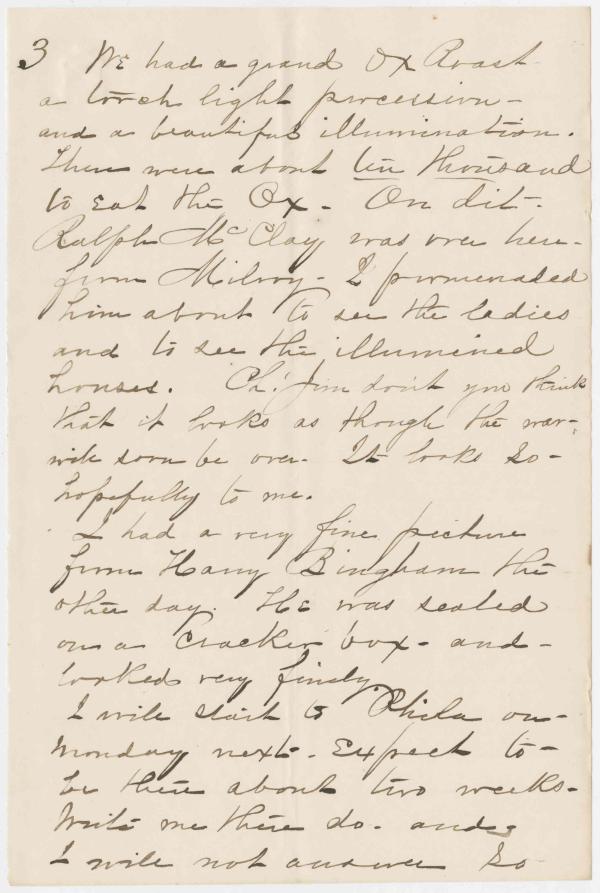 3 We had a grand Ox Roast
a torch light procession -
and a beautiful illumination.
There were about ten thousand
to eat the Ox - On dit -
Ralph McClay was over here -
from Milroy - I promenaded
him about to see the ladies
and to see the illumined
houses. Oh! Jim don't you think
that it looks as though the war -
will soon be over. It looks so -
hopefully to me.
I had a very fine picture
from Harry Bingham the
other day. He was seated
on a Cracker box - and -
looked very finely.
I will start to Phila on -
Monday next - Expect to -
be there about two weeks -
Write me there do - and -
I will not answer so